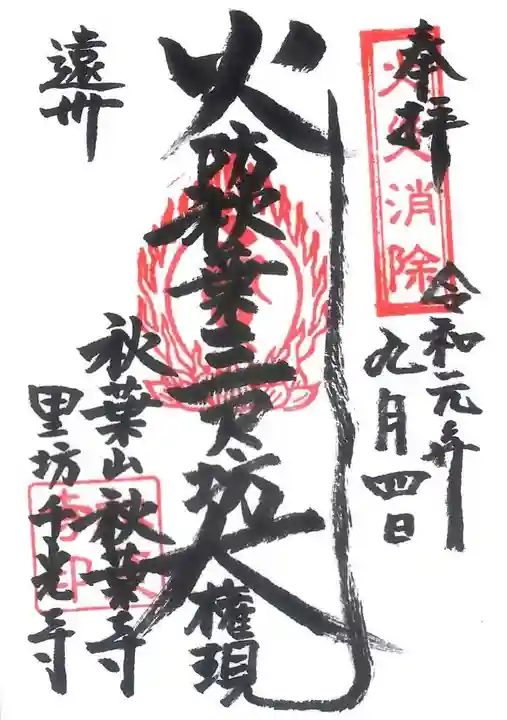 奉拝
火災消除
令和元年
九月四日
火
秋葉三尺坊大
権現
遠州
秋葉山秋葉寺
里坊千光寺